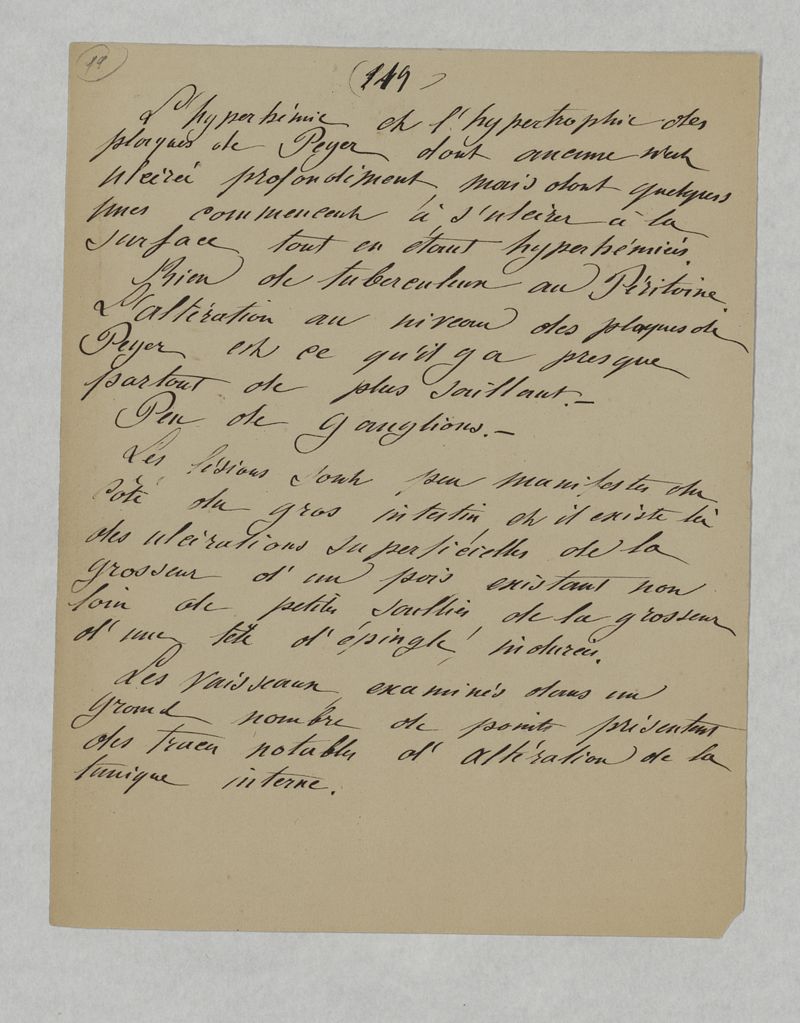 19
(149)
L'hyperhémie et l'hypertrophie des
plaques de Peyer dont aucune n'est
ulcéré profondément mais dont quelques
unes commencent à s'ulcérer à la
surface tout en étant hyperhémiés.
Rien de tuberculeux au Péritoine.
L'altération au niveau des plaques de
Peyer est ce qu'il y a presque
partout de plus saillant. —
Peu de ganglions. —
Les lésions sont peu manifestes du
côté du gros intestin, et il existe là
des ulcérations superficielles de la
grosseur d'un pois existant non
loin de petits saillies, de la grosseur
d'une tête d'épingle, indurées.
Les vaisseaux, examinés dans un
grand nombre de points présentent
des traces notables d'altération de la
tunique interne.